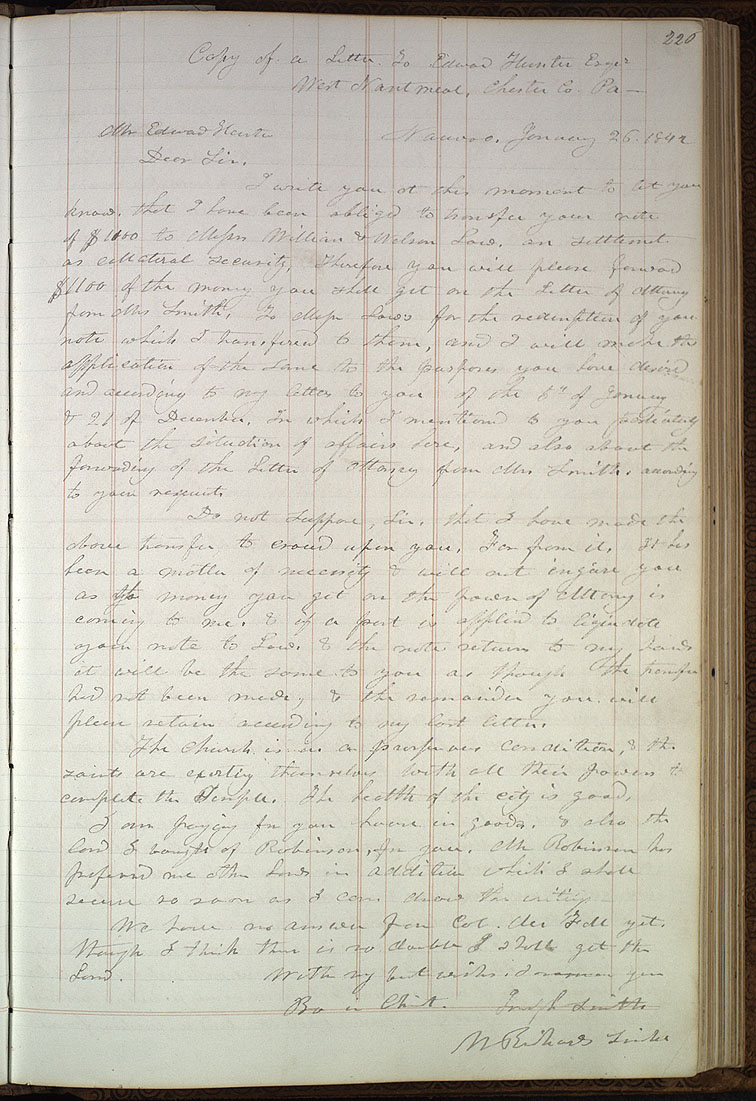 220
Copy of a Letter To Edward Hunter Esqr
West Nantmeal, Chester Co. Pa—
Mr Edward Hunter Nauvoo, January 26. 1842
Dear Sir,
I write you at this moment to let you
know, that I have been obliged to transfer your note
of $1100 to Messrs William & Wilson Law, on settlement
as collateral security, Therefore you will please forward
$1100 of the money you shall get on the Letter of Attorney
from Mrs Smith, To Messrs Laws for the redemption of your
note which I transfered to them, and I will make the
application of the Same to the purposes you have desired
and according to my letters to you of the 5th of January
& 21 of December, In which I mentioned to you particularly
about the situation of affairs here, and also about the
forwarding of the Letter of Attorney from Mrs Smith, according
to your request.
Do not suppose, Sir, that I have made the
above transfer to crowd upon you, Far from it. It has
been a matter of necessity & will not injure you
as the money you get on the power of Attorney is
coming to me, & if a part is applied to liquidate
your note to Law, & the note return to my hands
it will be the same to you as though the transfer
had not been made, & the remainder you will
please retain according to my last letter.
The Church is in a prosperous condition, & the
saints are exerting themselves with all their powers to
complete the Temple. The health of the city is good,
I am paying for your house in goods, & also the
land I bought of Robinson, for you, Mr Robinson has
me other lands in addition which I shall
secure so soon as I can draw the writing
We have no answer from Col. yet.
though I think there is no doubt I shall get the
Land. With my best wishes I remain your
Bro in Christ. Joseph Smith
W Richards